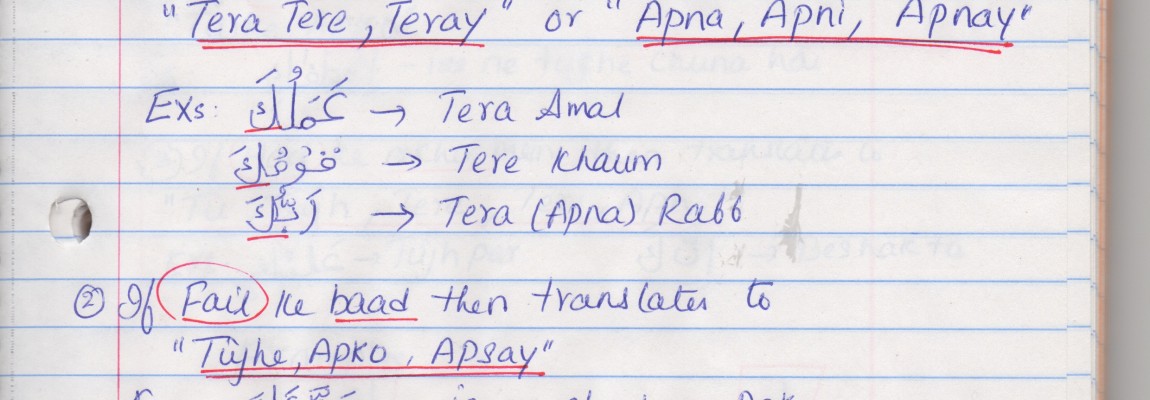 "Tera Tere, Teray" or "Apna, Apni, Apnay"
Exs: عَمَلُكَ → Tera Amal
قَوْمُكَ → Tere Khaum
رَبُّكَ → Tera (Apna) Rabb
② If Fail ke baad then translates to
"Tujhe, APKO, APSAY"